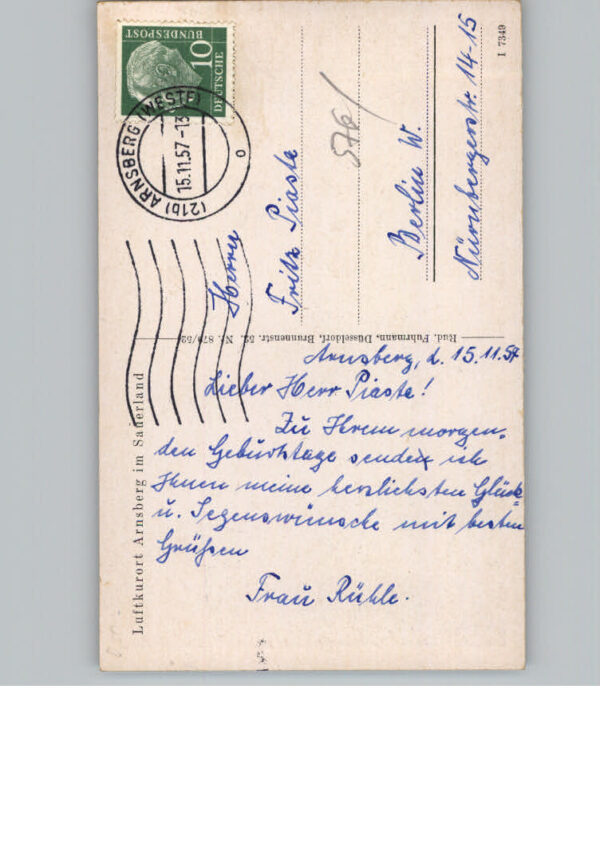 Luftkurort Arnsberg im Sauerland
Arnsberg, d. 15.11.57
Lieber Herr Piaste!
Zu Ihrem morgen-
den Geburtstage senden ich
Ihnen meine herzlichsten Glück-
u. Segenswünsche mit besten
Grüßen
Frau Rühle.
Rud. Fuhrmann, Düsseldorf, Brunnenstr. 52. Nr. 879/52
DEUTSCHE
BUNDESPOST
10
(21b) ARNSBERG (WESTF)
15.11.57-13
o
576/
Herrn
Fritz Piaste
Berlin W.
Nürnbergerstr. 14-15
I 7349